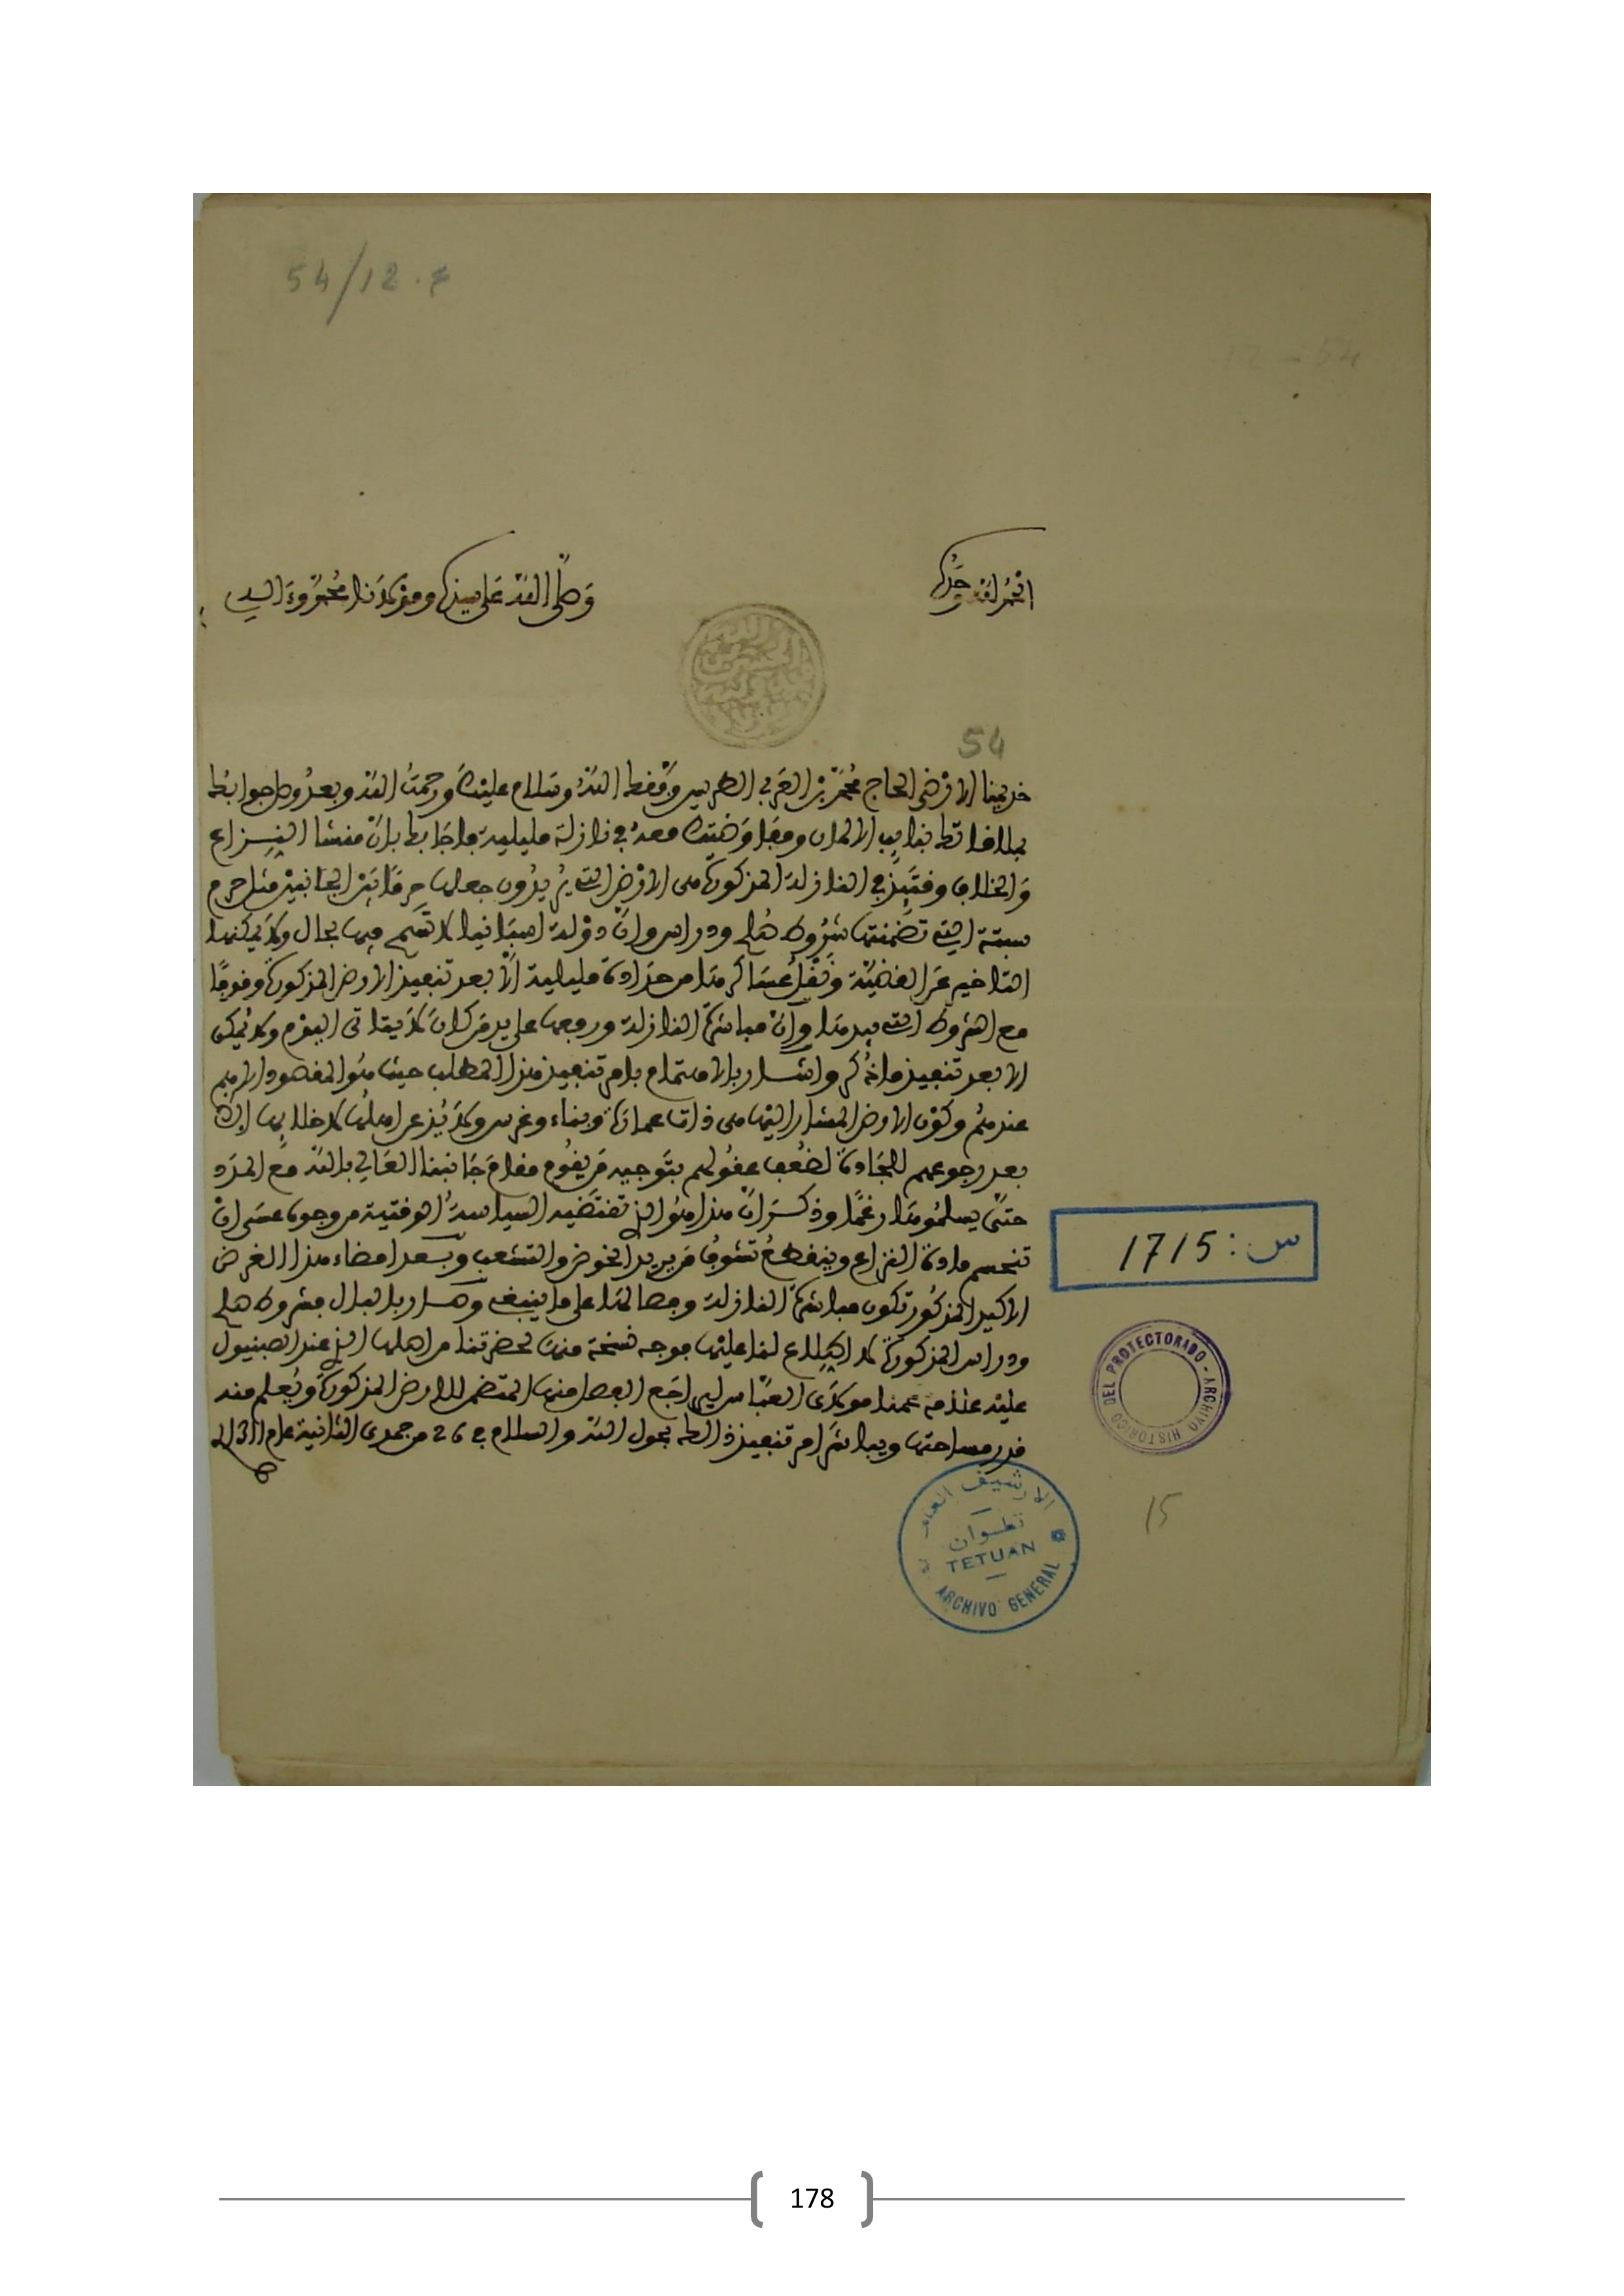 54/12.
12 - 54
الحمد لله وحده
وصلى الله على سيدنا ومولانا محمد وءاله
54
خديمنا الارضى الحاج محمد بن العربي الطريس وفقك الله وسلام عليك ورحمت الله وبعد وصل جوابك
بملاقاتك بنايب الالمان ومفاوضتك معه في نازلة مليلية فاجابك بان منشا النزاع
والخلاف وقتئذ في النازلة المذكورة هي الارض التي يريدون جعلها حرما بين الجانبين مثل حرم
سبتة التي تضمنتها شروط صلح ودراس وان دولة اسبانيا لا تسمح فيها بحال ولا يمكنها
التاخير عن القضية ونقل عساكرها من حدادة مليلية الا بعد تنفيذ الارض المذكورة وفوقا
مع الشروط التي بيدها وان مباشرة النازلة وروجها على يد من كان لا يتاتى اليوم ولا يمكن
الا بعد تنفيذ ما ذكر واشار بالاهتمام بامر تنفيذ هذا المطلب حيث هو المقصود الاهم
عندهم وكون الارض المشار اليها هي ذات عمارة وبناء وغرس ولا يذعن اهلها لاخلائها
بعد رجوعهم للجادة لضعف عقولهم بتوجيه من يقوم مقام جانبنا العالي بالله مع المدد
حتى يسلموها رغما وذكر ان هذا هو الذي تقتضيه السياسة الوقتية من وجوه عسى ان
تنحسم مادة النزاع وينقطع تشوف من يريد الخوض والتشعب وبعد امضاء هذا الغرض
الاكيد المذكور تكون مباشرة النازلة وفصالها على ما ينبغي وصار بالبال فشروط صلح
ودراس المذكورة لا اطلاع لنا عليها فوجه نسخة منها لحضرتنا من اصلها الذي عند الصبنيول
عليه علامة عمنا مولاي العباس ليراجع الفصل منها المتضمن للارض المذكورة ويعلم منه
قدر مساحتها ويباشر امر تنفيذ ذالك بحول الله والسلام في 26 من جمدى الثانية عام 1311
س: 1715
ARCHIVO HISTORICO DEL PROTECTORADO
15
الارشيف العام
تطوان
TETUAN
ARCHIVO GENERAL
178